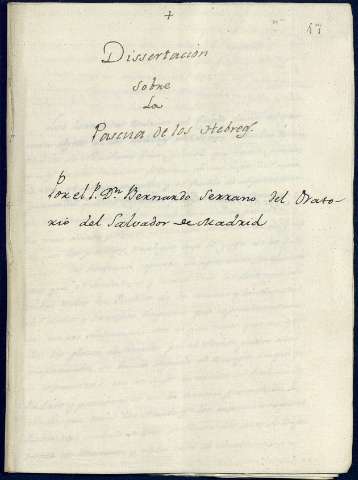 +
Dissertación
sobre
La
Pascua de los Hebreos.
Por el P. Dn. Bernardo Serrano del Orato-
rio del Salvador de Madrid